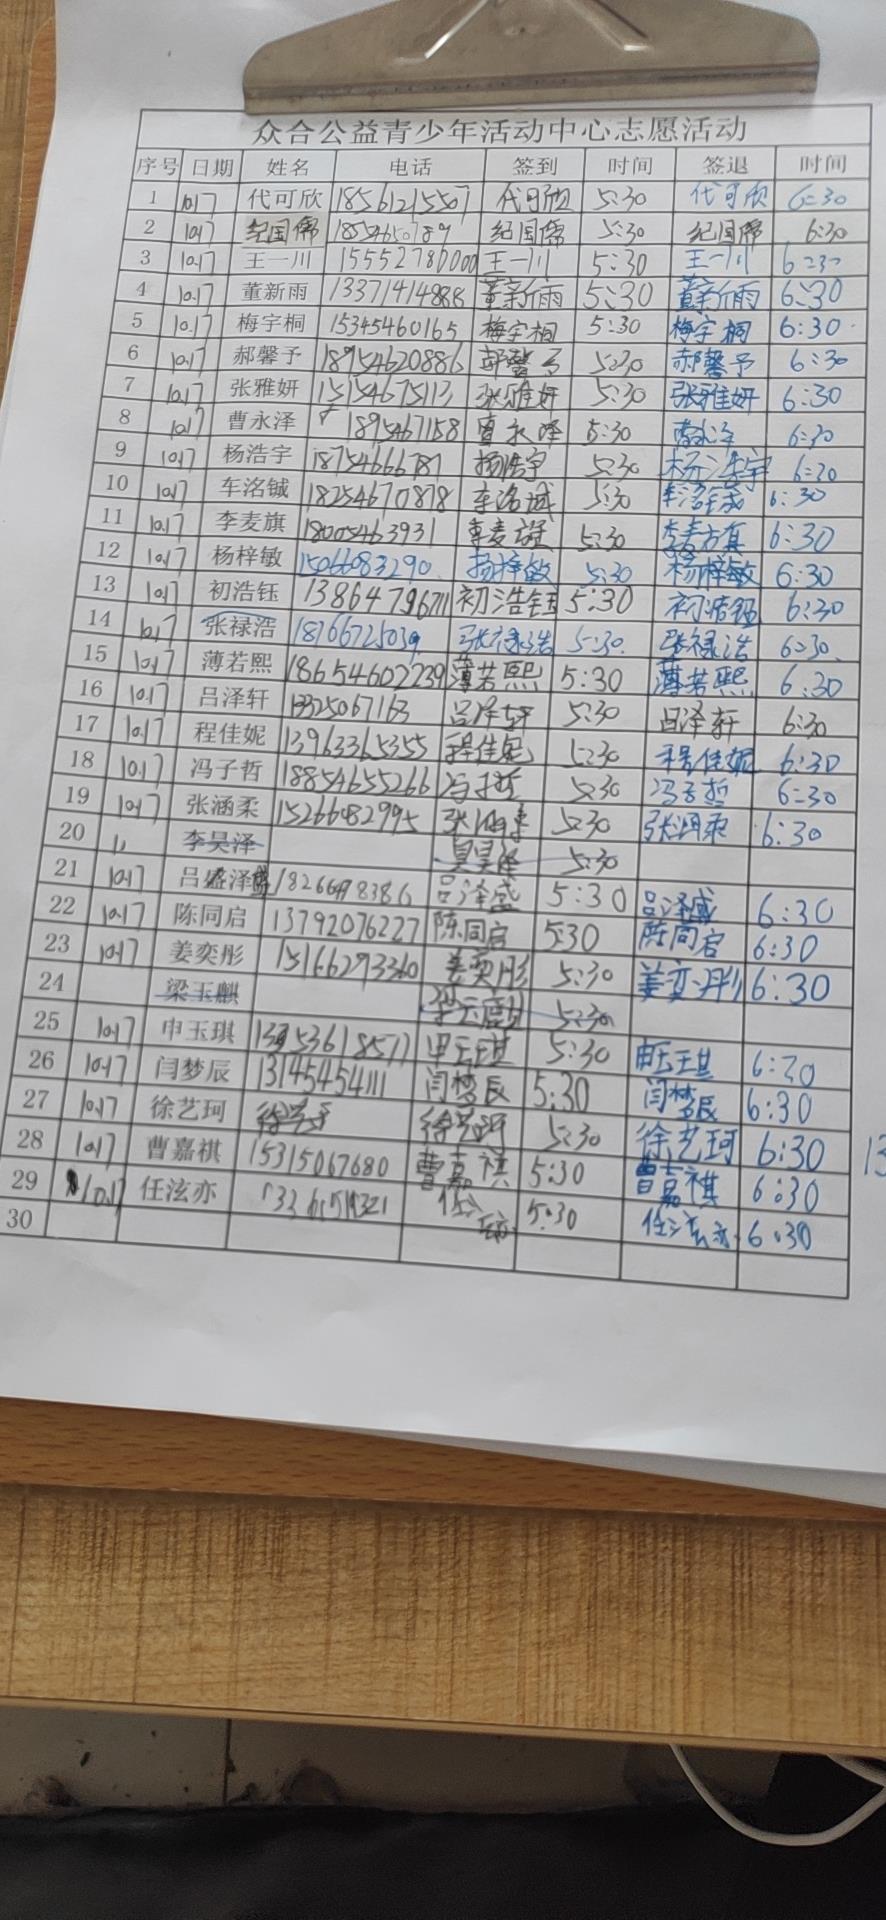 众合公益青少年活动中心志愿活动
序号 日期 姓名 电话 签到 时间 签退 时间
1 10.17 代可欣 18561215507 代可欣 5:30 代可欣 6:30
2 10.17 纪国席 18554650789 纪国席 5:30 纪国席 6:30
3 10.17 王一川 15552780000 王一川 5:30 王一川 6:30
4 10.17 董新雨 13371414888 董新雨 5:30 董新雨 6:30
5 10.17 梅宇桐 15345460165 梅宇桐 5:30 梅宇桐 6:30
6 10.17 郝馨予 18954620886 郝馨予 5:30 郝馨予 6:30
7 10.17 张雅妍 15154675113 张雅妍 5:30 张雅妍 6:30
8 10.17 曹永泽 1895467158 曹永泽 5:30 6:30
9 10.17 杨浩宇 18754666787 杨浩宇 5:30 杨浩宇 6:30
10 10.17 车洺铖 18254670878 车洺城 5:30 6:30
11 10.17 李麦旗 18005463931 5:30 6:30
12 10.17 杨梓敏 15066083290 杨梓敏 5:30 杨梓敏 6:30
13 10.17 初浩钰 13864796711 初浩钰 5:30 初浩钰 6:30
14 10.17 张禄浩 18766725039 张禄浩 5:30 张禄浩 6:30
15 10.17 薄若熙 18654602239 薄若熙 5:30 薄若熙 6:30
16 10.17 吕泽轩 13325067163 吕泽轩 5:30 吕泽轩 6:30
17 10.17 程佳妮 13963365355 程佳妮 5:30 程佳妮 6:30
18 10.17 冯子哲 18854655266 冯子哲 5:30 冯子哲 6:30
19 10.17 张涵柔 15266082995 5:30 张涵柔 6:30
20 李昊泽 5:30
21 10.17 吕盛泽 18266498386 吕泽盛 5:30 吕泽盛 6:30
22 10.17 陈同启 13792076227 陈同启 5:30 陈同启 6:30
23 10.17 姜奕彤 15166293360 姜奕彤 5:30 姜奕彤 6:30
24 梁玉麒 5:30
25 10.17 申玉琪 申玉琪 5:30 申玉琪 6:30
26 10.17 闫梦辰 13145454111 闫梦辰 5:30 闫梦辰 6:30
27 10.17 徐艺珂 徐艺珂 5:30 徐艺珂 6:30
28 10.17 曹嘉祺 15315067680 曹嘉祺 5:30 曹嘉祺 6:30
29 10.17 任泫亦 5:30 任泫亦 6:30
30
13